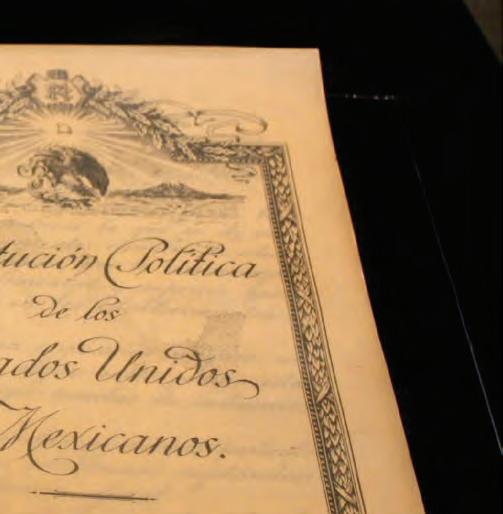 tución Política
de los
ados Unidos
Mexicanos.